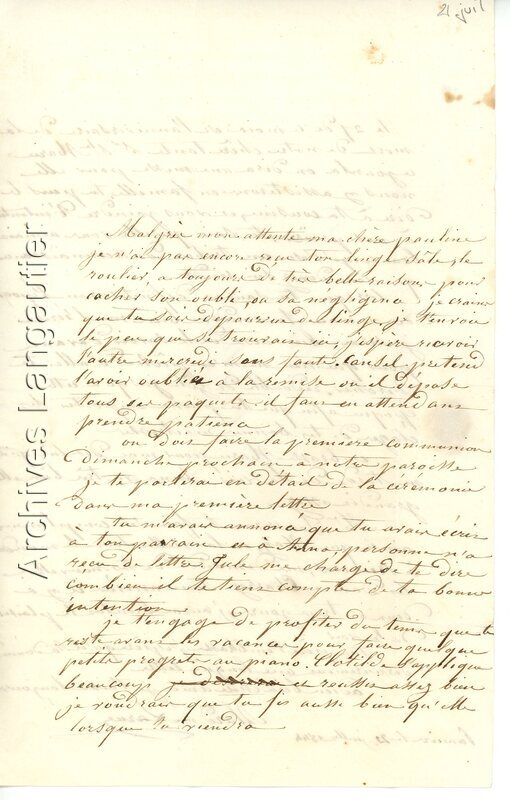 21 juil
Malgrée mon attente ma chère pauline
je n'ai pas encore reçu ton linge sâle, le
roulier, a toujours de très belle raisons pour
cacher son oubli, ou sa negligence je crains
que tu sois depourvue de linge, je t'envoie
le peu qui se trouvait ici, j'espère recevoir
l'autre mercredi sans faute. Cansel pretend
l'avoir oublié à la remise ou il depose
tous ses paquets. il faut en attendant
prendre patience
on doit faire la première communion
dimanche prochain a notre paroisse
je te parlerai en détail de la céremonie
dans ma première lettre
tu m'avais annoncé que tu avais écris
à ton parrain et à Anna, personne n'a
reçu de lettre. Jule me charge de te dire
combien il te tiens compte de ta bonne
intention
je t'engage de profiter du tems que te
reste avant les vacances pour faire quelque
petits progrets au piano. Clotilde s'applique
beaucoup et roussis assez bien
je voudrais que tu fis aussi bien qu'elle
lorsque tu viendra
Archives Langautier